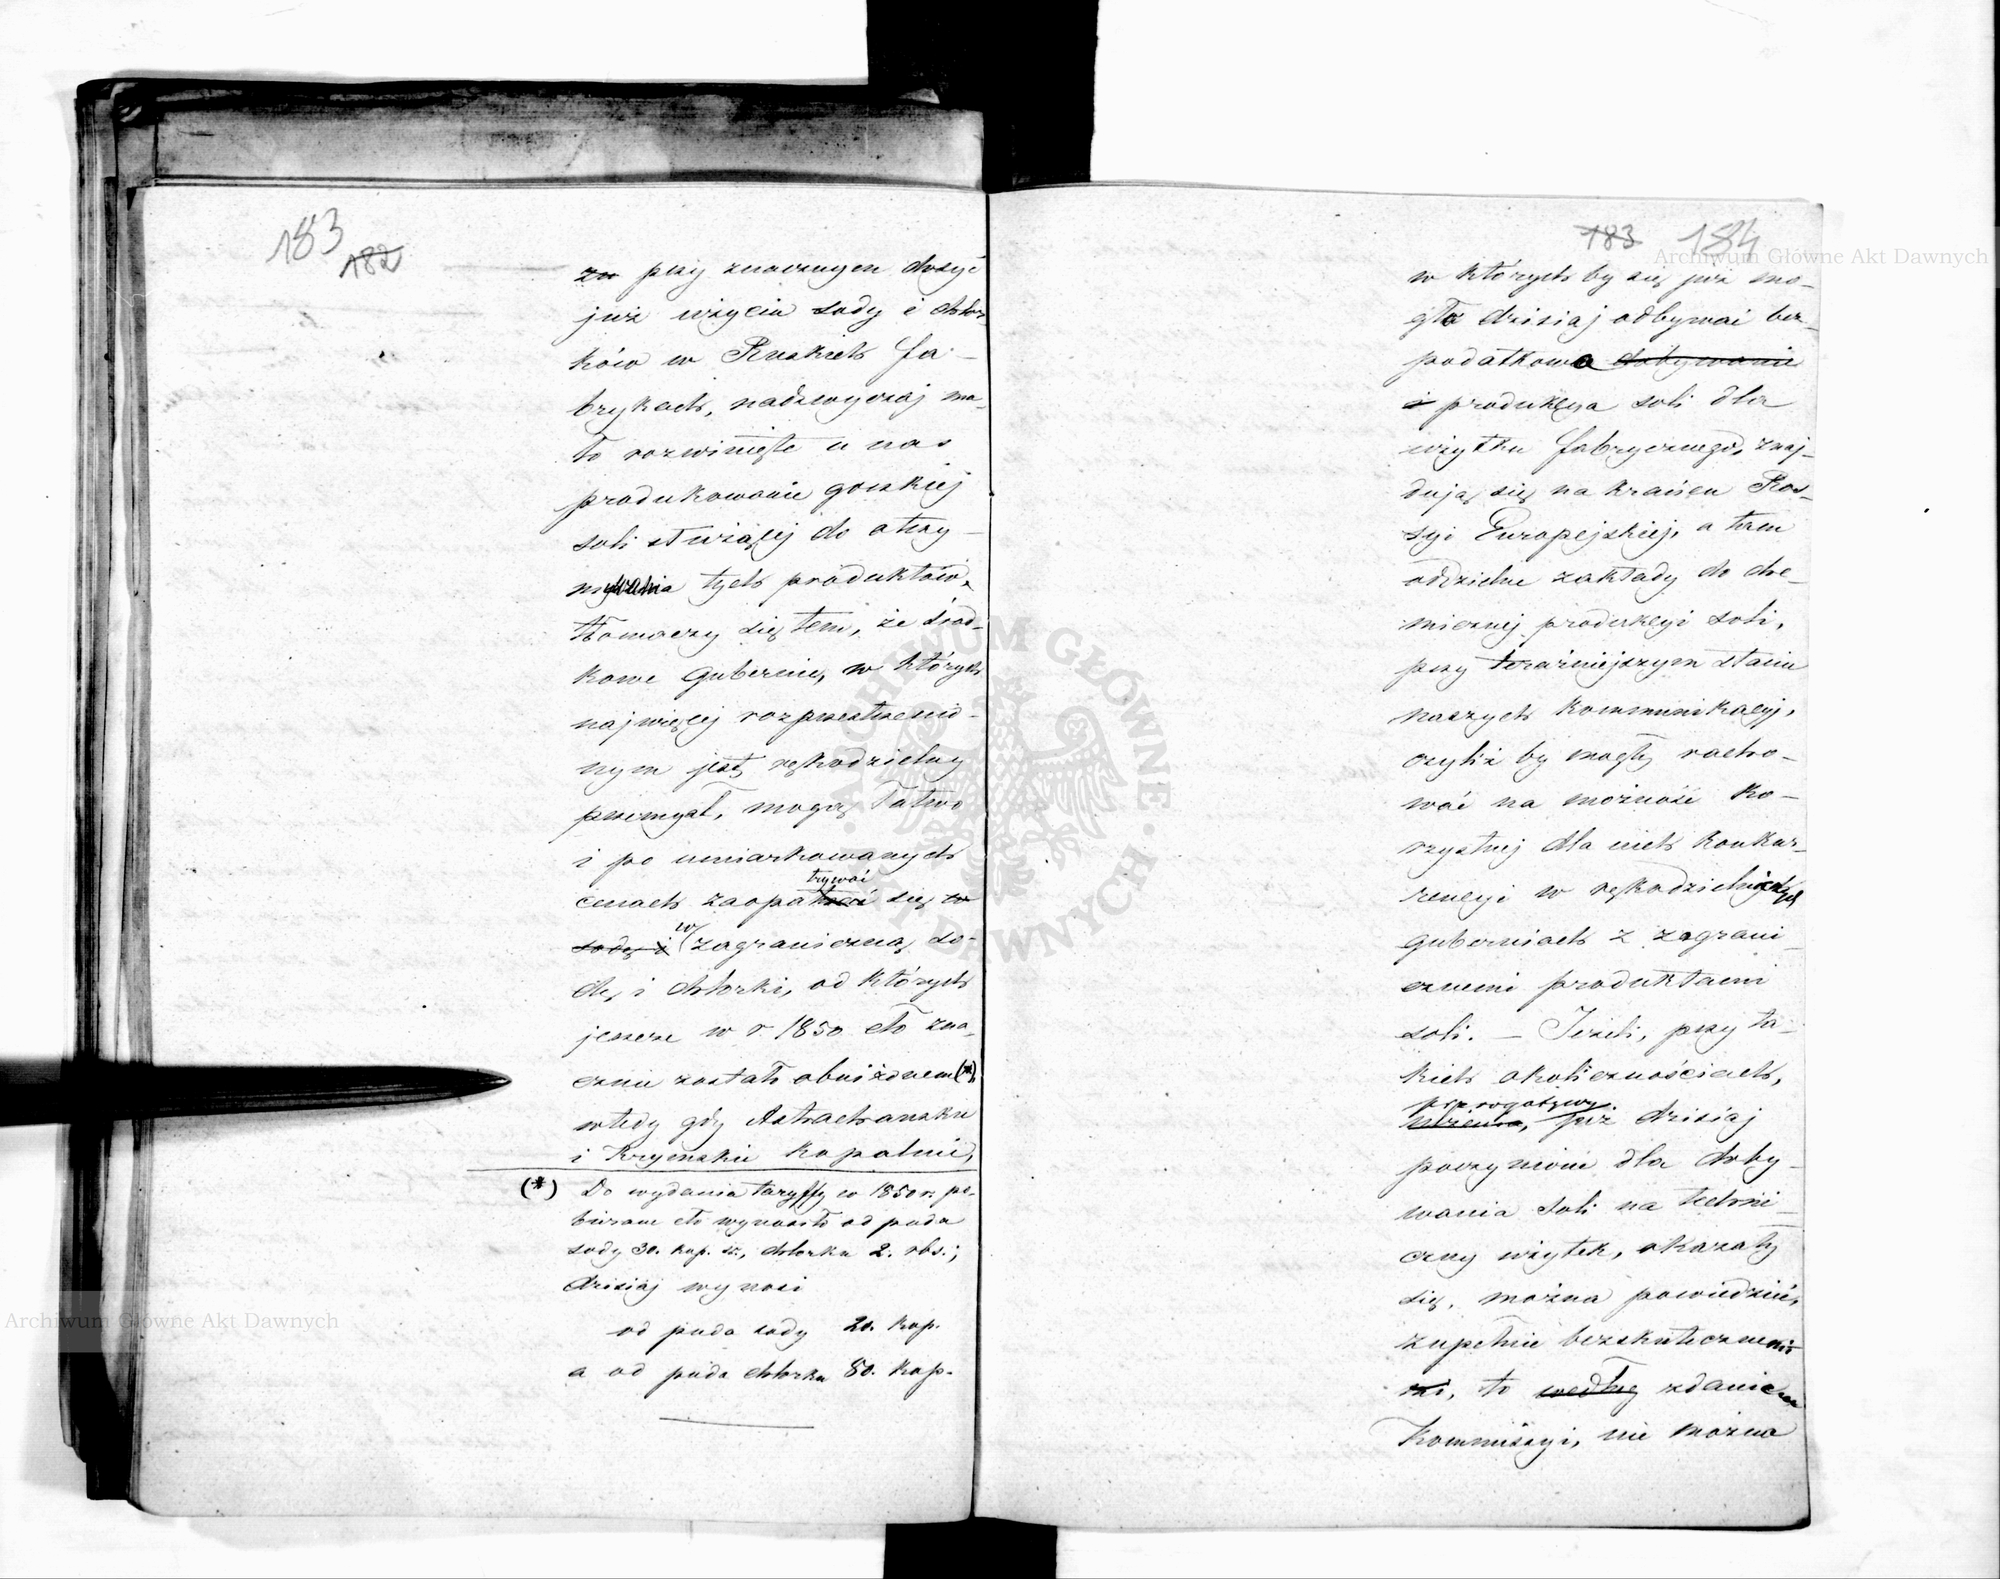 183
182
zu przy znacznym dosyć
już użyciu sody i chlor-
ków w Ruskich fa-
brykach, nadzwyczaj ma-
ło rozwinięte u nas
produkowanie gorzkiej
soli służącej do otrzy-
mywania tych produktów,
tłomaczy się tem, że środ-
kowe Gubernie, w których
najwięcej rozprzestrzenio-
nym jest rękodzielny
przemysł, mogą łatwo
i po umiarkowanych
trywać
cenach zaopatrzeć się w
sodę i w zagraniczną so-
dę i chlorki, od których
jeszcze w r. 1850 cło zna-
cznie zostało obniżonem (*),
wtedy gdy Astrachańskie
i Krymskie kopalnie,
(*) Do wydania taryffy w 1850 r. po-
bierane cło wynosiło od puda
sody 30. kop. sr., chlorku 2. rbs.;
dzisiaj wynosi
od puda sody 20. kop.
a od puda chlorku 80. kop.
183 184
w których by się już mo-
gła dzisiaj odbywać bez-
podatkowa dobywanie
i produkcya soli dla
użytku fabrycznego, znaj-
dują się na krańcu Ros-
syi Europejskiej, a tem
oddzielne zakłady do che-
micznej produkcyi soli,
przy teraźniejszym stanie
naszych kommunikacyj,
czyliż by mogły racho-
wać na możność ko-
rzystnej dla nich konkur-
rencyi w rękodzielniczych
guberniach z zagrani-
cznemi produktami
soli. — Jeżeli, przy ta-
kich okolicznościach,
prerogatywy
już dzisiaj
poczynione dla doby-
wania soli na techni-
czny użytek, okazały
się, można powiedzieć,
zupełnie bezskutecznemi
to według zdaniem
Kommissyi, nie można
Archiwum Główne Akt Dawnych
Archiwum Główne Akt Dawnych
ARCHIWUM GŁÓWNE AKT DAWNYCH